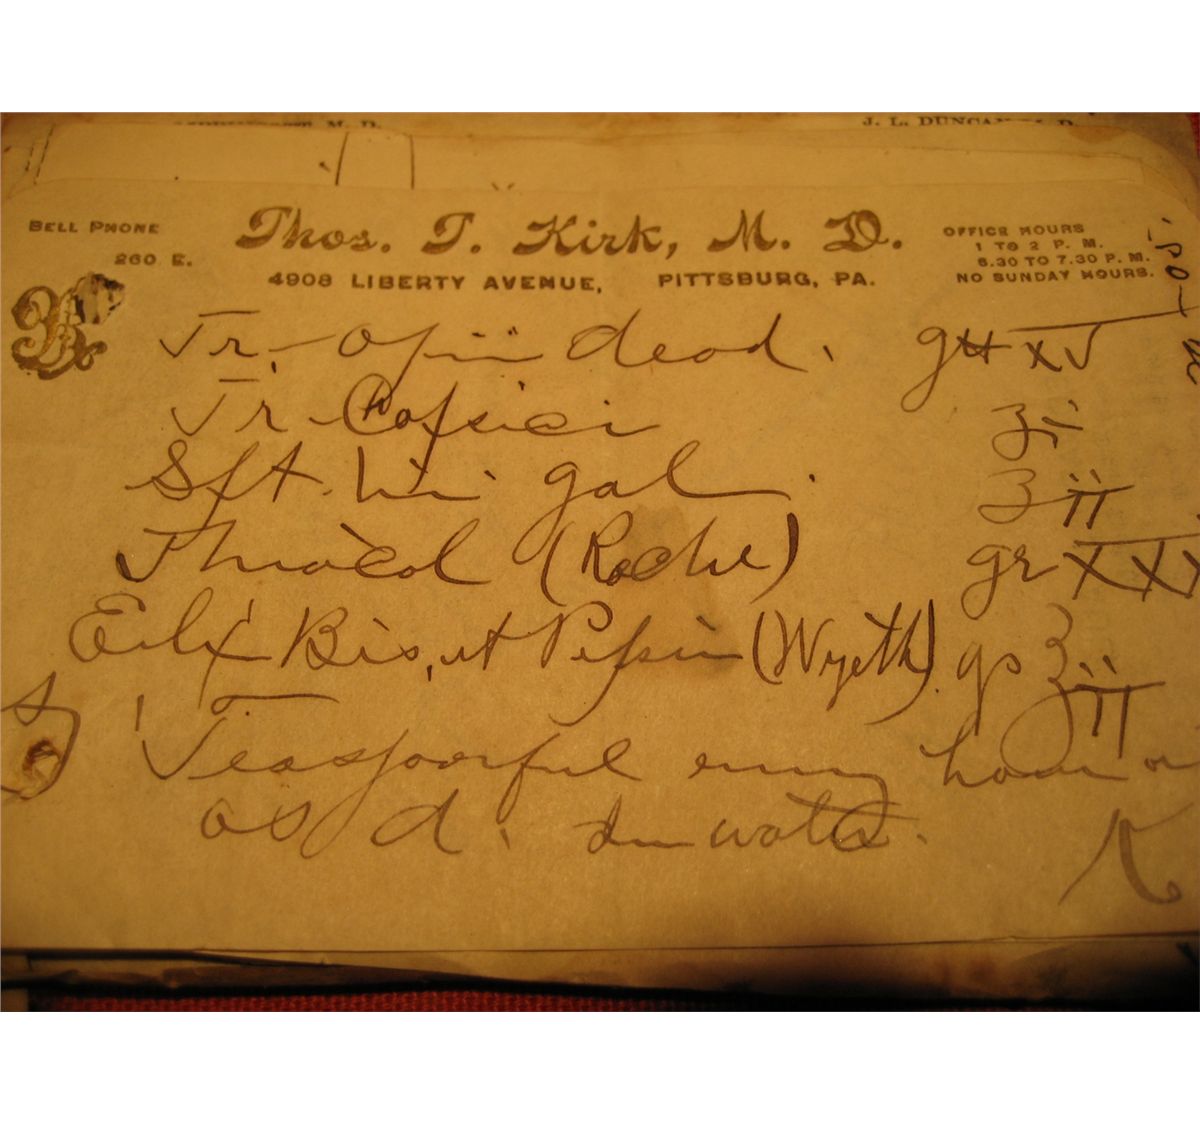 J. L. DUNCAN, M. D.
BELL PHONE
260 E.
Thos. T. Kirk, M. D.
4908 LIBERTY AVENUE, PITTSBURG, PA.
OFFICE HOURS
1 TO 2 P. M.
6.30 TO 7.30 P. M.
NO SUNDAY HOURS.
℞
Tr. Opii deod. gtt xv
Tr. Capsici ʒi
Spt. Vini gal. ʒii
Thiocol (Roche) gr xxx
Elix Bis. et Pepsin (Wyeth) qs ʒii
Teaspoonful every hour or
as d. in water.
K